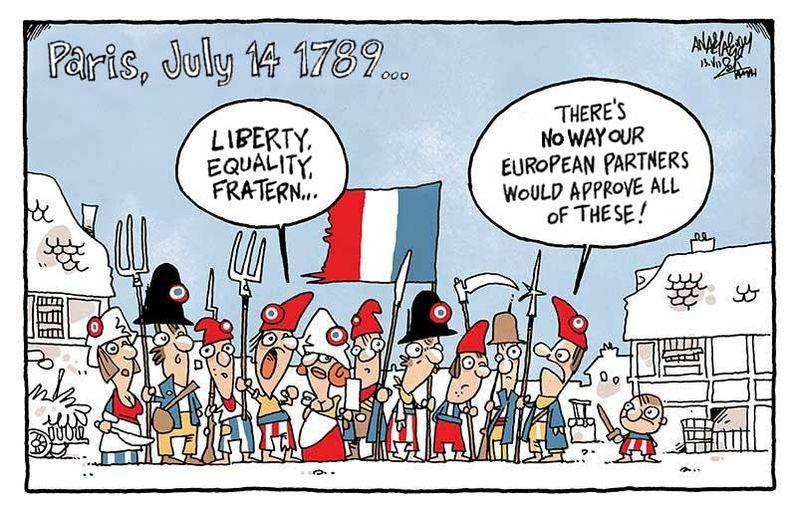 Paris, July 14 1789...
LIBERTY,
EQUALITY,
FRATERN...
THERE'S
NO WAY OUR
EUROPEAN PARTNERS
WOULD APPROVE ALL
OF THESE!